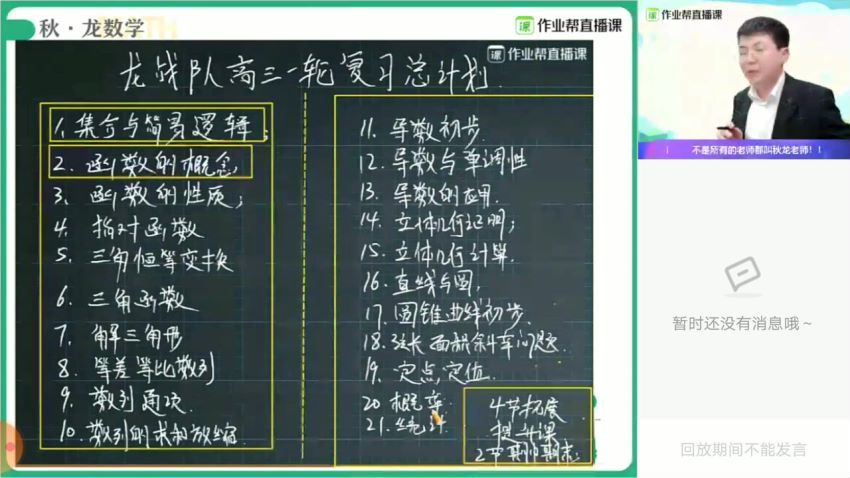 秋·龙数学
作业帮直播课
作业帮直播课
作业帮直播课
龙战队高三一轮复习总计划
1. 集合与简易逻辑;
2. 函数的概念;
3. 函数的性质;
4. 指对函数
5. 三角恒等变换
6. 三角函数
7. 解三角形
8. 等差等比数列
9. 数列通项.
10. 数列的求和放缩.
11. 导数初步.
12. 导数与单调性
13. 导数的应用.
14. 立体几何证明;
15. 立体几何计算.
16. 直线与圆.
17. 圆锥曲线初步.
18. 弦长面积斜率问题.
19. 定点,定值.
20 概率
21. 统计
4节拓展
提升课
2节期中期末.
不是所有的老师都叫秋龙老师!!
暂时还没有消息哦~
回放期间不能发言